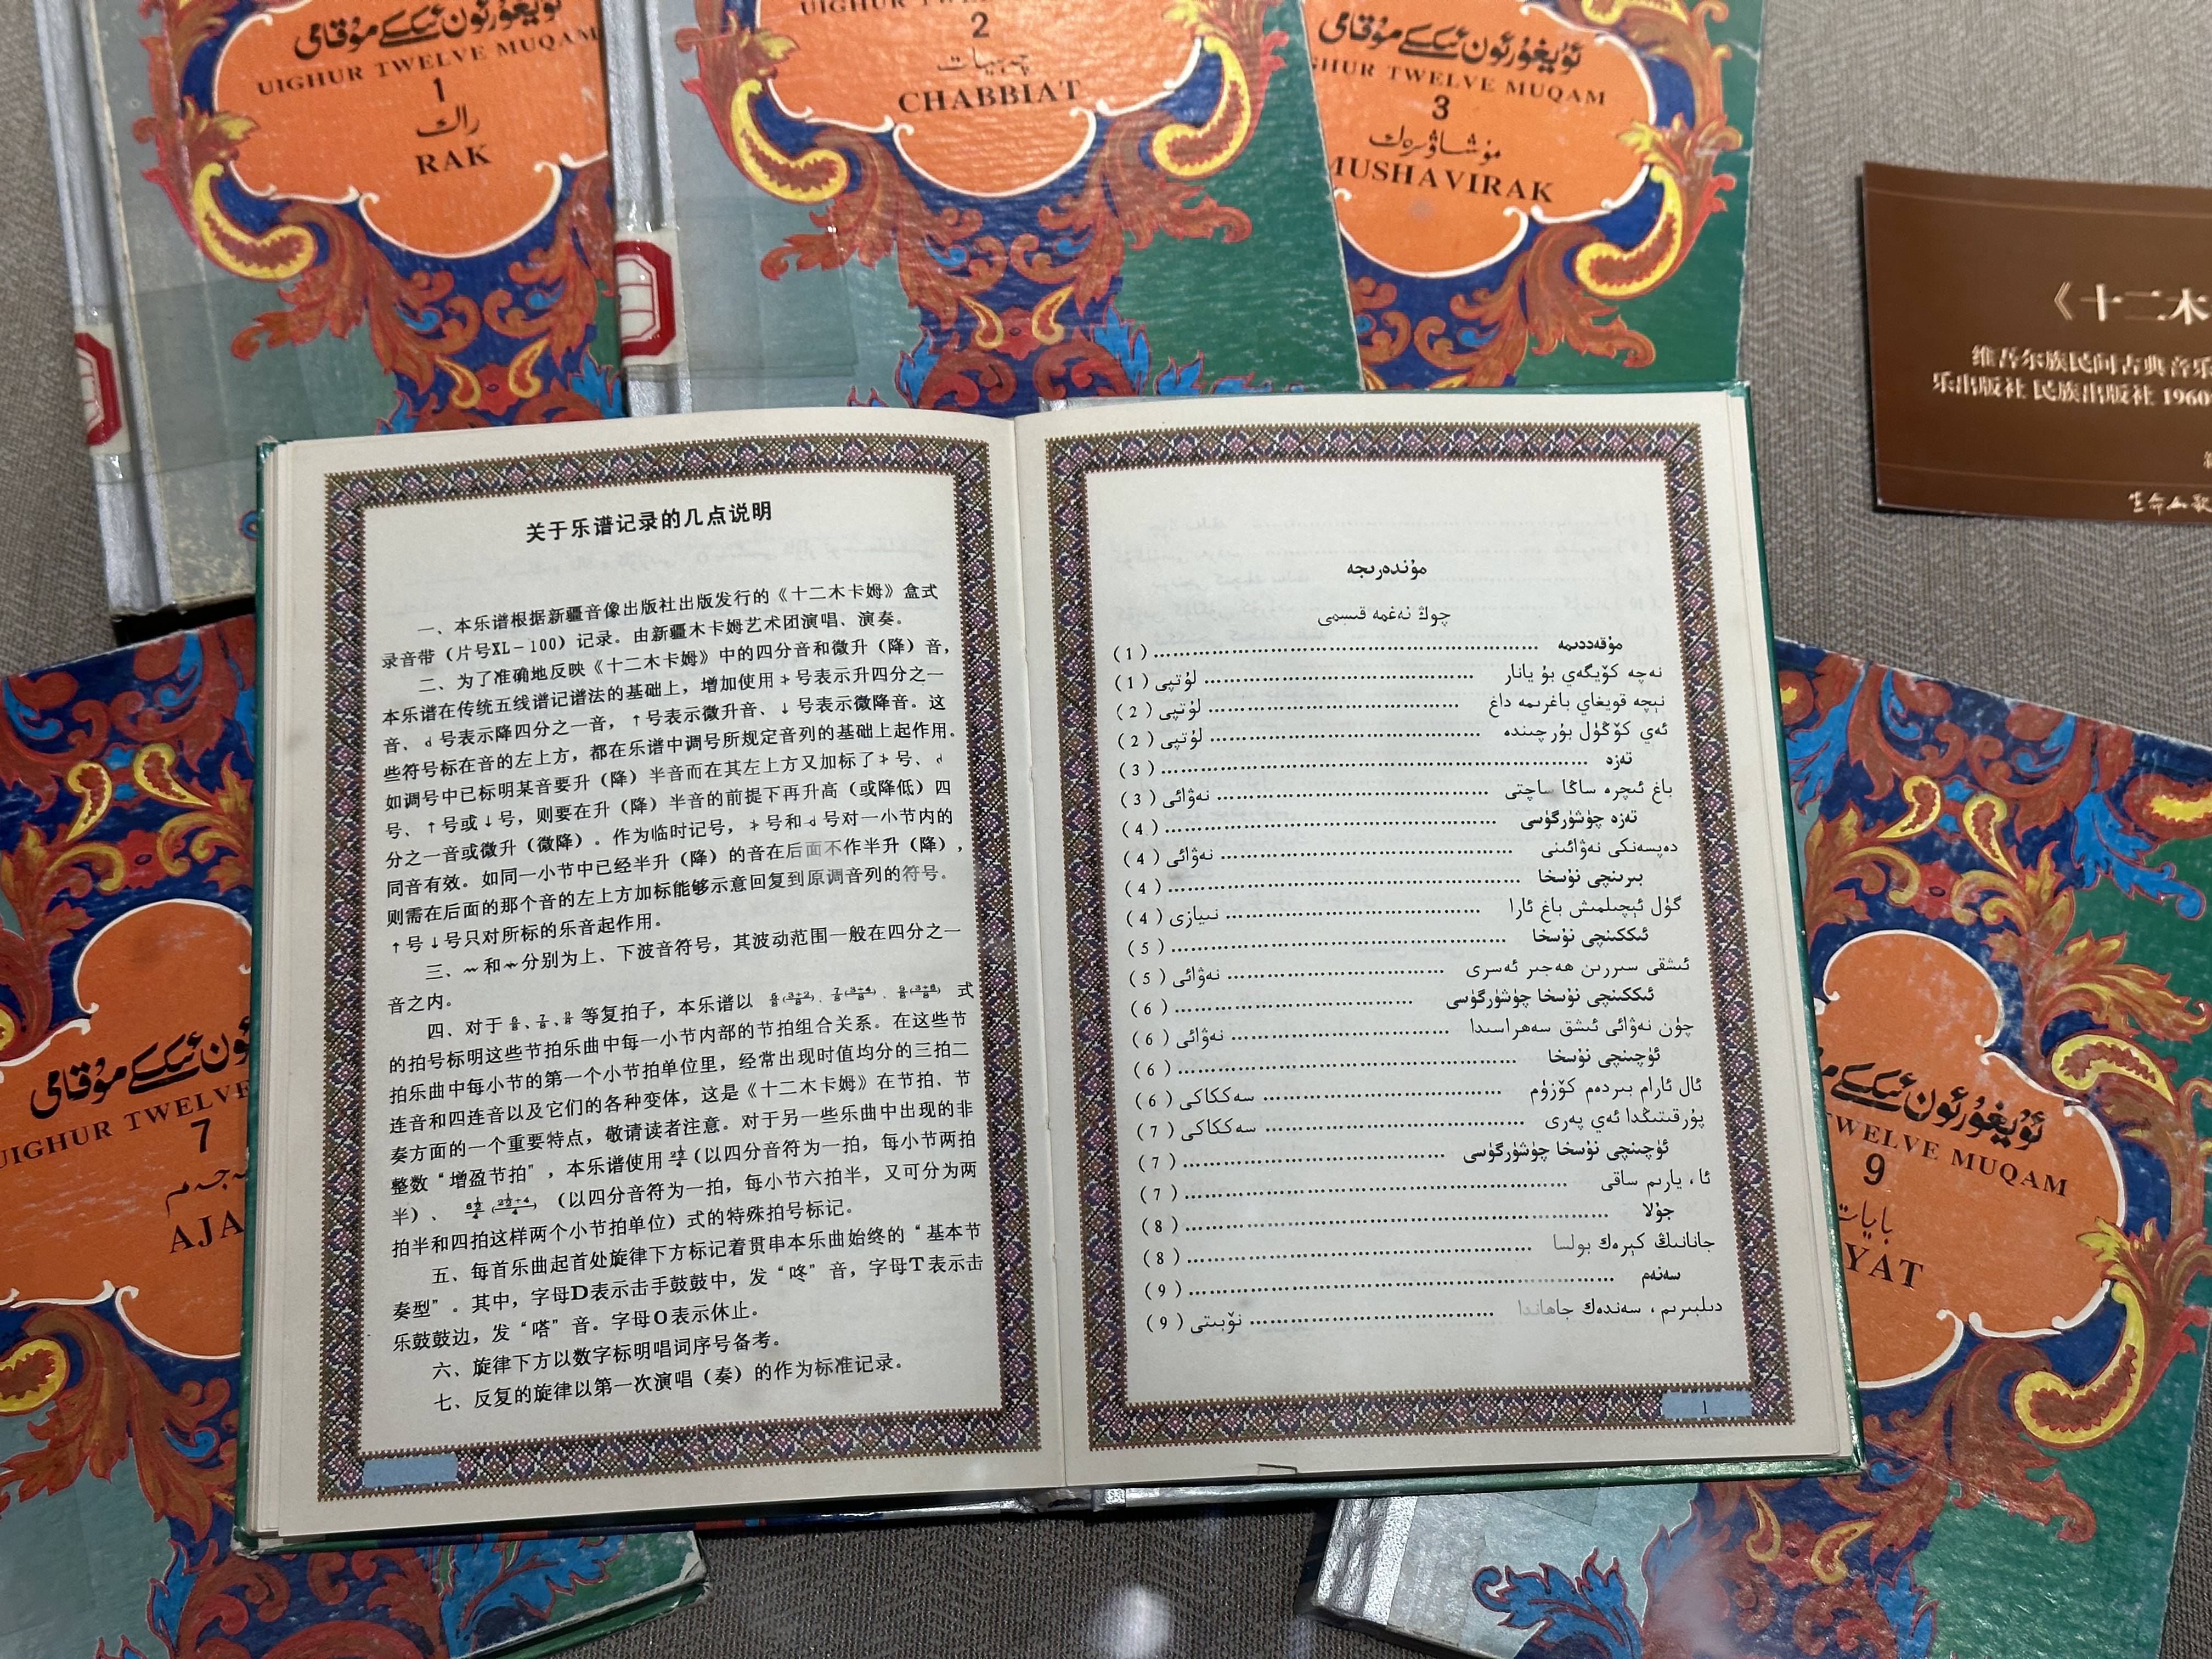 ئۇيغۇر ئون ئىككى مۇقامى
UIGHUR TWELVE MUQAM
1
راك
RAK
2
چەبىيات
CHABBIAT
ئۇيغۇر ئون ئىككى مۇقامى
GHUR TWELVE MUQAM
3
مۇشاۋىرەك
MUSHAVIRAK
《十二木
维吾尔族民间古典音乐
乐出版社 民族出版社 1960
关于乐谱记录的几点说明
一、本乐谱根据新疆音像出版社出版发行的《十二木卡姆》盒式
录音带（片号XL－100）记录。由新疆木卡姆艺术团演唱、演奏。
二、为了准确地反映《十二木卡姆》中的四分音和微升（降）音，
本乐谱在传统五线谱记谱法的基础上，增加使用 号表示升四分之一
音、 号表示降四分之一音，↑号表示微升音、↓号表示微降音。这
些符号标在音的左上方，都在乐谱中调号所规定音列的基础上起作用。
如调号中已标明某音要升（降）半音而在其左上方又加标了 号、
号、↑号或↓号，则要在升（降）半音的前提下再升高（或降低）四
分之一音或微升（微降）。作为临时记号， 号和 号对一小节内的
同音有效。如同一小节中已经半升（降）的音在后面不作半升（降），
则需在后面的那个音的左上方加标能够示意回复到原调音列的符号。
↑号↓号只对所标的乐音起作用。
三、 和 分别为上、下波音符号，其波动范围一般在四分之一
音之内。
四、对于 、 、 等复拍子，本乐谱以 、 、 式
的拍号标明这些节拍乐曲中每一小节内部的节拍组合关系。在这些节
拍乐曲中每小节的第一个小节拍单位里，经常出现时值均分的三拍二
连音和四连音以及它们的各种变体，这是《十二木卡姆》在节拍、节
奏方面的一个重要特点，敬请读者注意。对于另一些乐曲中出现的非
整数“增盈节拍”，本乐谱使用 （以四分音符为一拍，每小节两拍
半）、 （以四分音符为一拍，每小节六拍半，又可分为两
拍半和四拍这样两个小节拍单位）式的特殊拍号标记。
五、每首乐曲起首处旋律下方标记着贯串本乐曲始终的“基本节
奏型”。其中，字母D表示击手鼓鼓中，发“咚”音，字母T表示击
乐鼓鼓边，发“嗒”音。字母O表示休止。
六、旋律下方以数字标明唱词序号备考。
七、反复的旋律以第一次演唱（奏）的作为标准记录。
مۇندەرىجە
چوڭ نەغمە قىسمى
مۇقەددىمە ........ (1)
نەچە كۆيگەي بۇ يانار ........ لۇتپى (1)
نېچە قويغاي باغرىمە داغ ........ لۇتپى (2)
ئەي كۆڭۈل بۇرچىندە ........ لۇتپى (2)
تەزە ........ (3)
باغ ئىچرە ساڭا ساچتى ........ نەۋائى (3)
تەزە چۈشۈرگۈسى ........ (4)
دەپسەنكى نەۋائىنى ........ نەۋائى (4)
بىرىنچى نۇسخا ........ (4)
گۈل ئېچىلمىش باغ ئارا ........ نىيازى (4)
ئىككىنچى نۇسخا ........ (5)
ئىشقى سىررىن ھەجىر ئەسرى ........ نەۋائى (5)
ئىككىنچى نۇسخا چۈشۈرگۈسى ........ (6)
چۈن نەۋائى ئىشق سەھراسىدا ........ نەۋائى (6)
ئۈچىنچى نۇسخا ........ (6)
ئال ئارام بىردەم كۆزۈم ........ سەككاكى (6)
پۇرقىتىڭدا ئەي پەرى ........ سەككاكى (7)
ئۈچىنچى نۇسخا چۈشۈرگۈسى ........ (7)
ئا، يارىم ساقى ........ (7)
جۇلا ........ (8)
جانانىڭ كېرەك بولسا ........ (8)
سەنەم ........ (9)
دىلبىرىم، سەندەك جاھاندا ........ نۆبىتى (9)
1
ئون ئىككى مۇقامى
UIGHUR TWELVE
7
AJA
ئۇيغۇر ئون ئىككى
TWELVE MUQAM
9
بايات
YAT